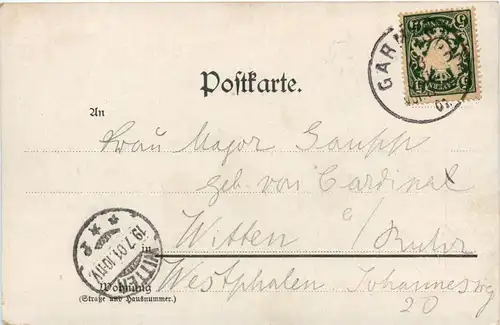 5 5
GARM
01.
Postkarte.
An
Frau Major Gaupp
geb. von Cardinal
in
Witten a/Ruhr
Westphalen. Johannesweg
20
Wohnung
(Straße und Hausnummer.)
WITTEN
19.7.01.10-11V.